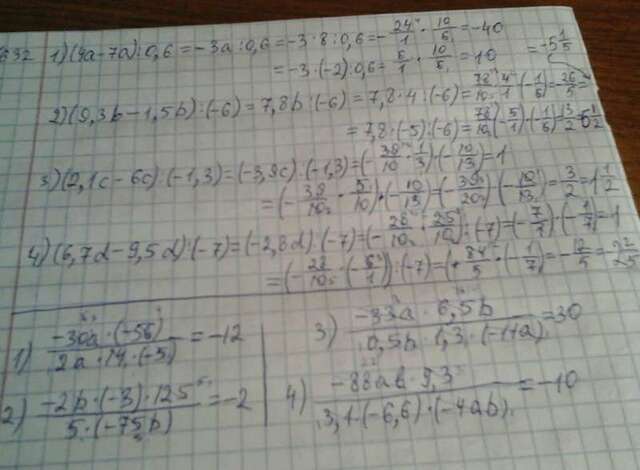 832 1) (4a-7a):0,6=-3a:0,6=-3·8:0,6=-24/1·10/6=-40
=-3·(-2):0,6=6/1·10/6=10 =-5 1/5
2) (9,3b-1,5b):(-6)=7,8b:(-6)=7,8·4:(-6)=78/10·4/1·(-1/6)=26/5=
=7,8·(-5):(-6)=78/10·(-5/1)·(-1/6)=13/2=6 1/2
3) (2,1c-6c):(-1,3)=(-3,9c):(-1,3)=(-39/10·1/3)·(-10/13)=1
=(-39/10·5/10)·(-10/13)=(-39/20)·(-10/13)=3/2=1 1/2
4) (6,7d-9,5d):(-7)=(-2,8d):(-7)=(-28/10·25/10):(-7)=(-7/7)·(-1/7)=1
=(-28/10·(-6/1)):(-7)=(+84/5·(-1/7)=-12/5=
1) -30a·(-56)/2a·14·(-5)=-12
3) -33a·6,5b/0,5b·1,3·(-11a)=30
2) -2b·(-3)·125/5·(-75b)=-2
4) -88ab·9,3/3,1·(-6,6)·(-4ab)=-10